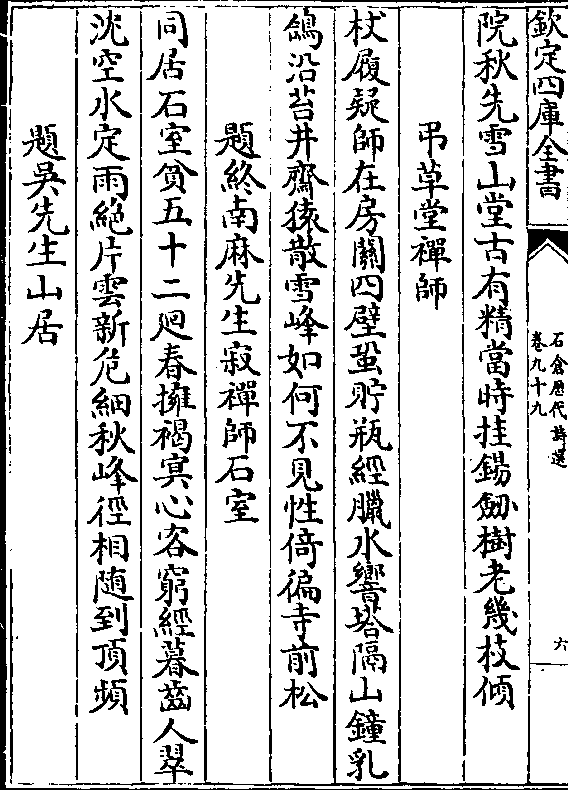 欽定四庫全書
石倉歴代詩選
卷九十九
六
院秋先雪山堂古有精當時挂錫劒樹老幾枝傾
弔草堂禪師
杖履疑師在房關四壁蛩貯瓶經臘水響塔隔山鐘乳
鴿沿苔井齋猿散雪峰如何不見性倚徧寺前松
題終南麻先生寂禪師石室
同居石室貧五十二廻春擁褐㝠心客窮經暮齒人翠
沈空水定雨絶片雲新危細秋峰徑相随到頂頻
題吳先生山居